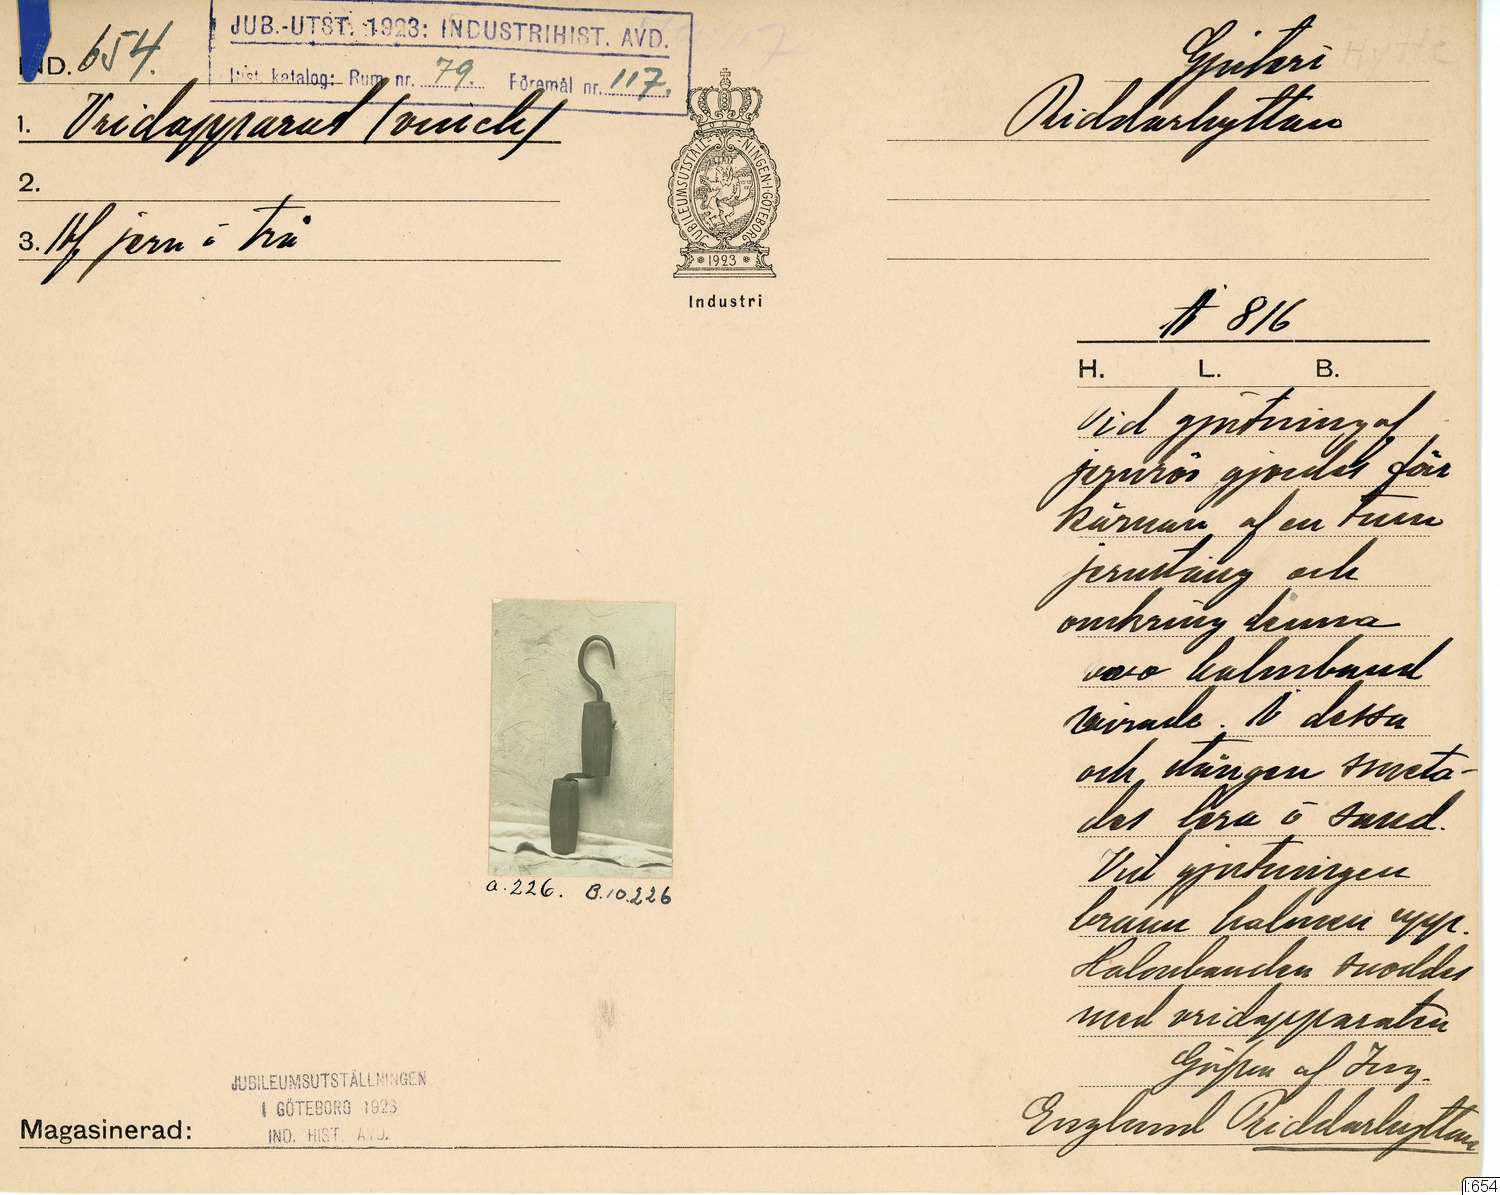 JUB.-UTST. 1923: INDUSTRIHIST. AVD.
Hist. katalog: Rum nr. 79. Föremål nr. 117.
IND. 654.
1. Vridapparat (vinch)
2.
3. Af jern o trä
JUBILEUMSUTSTÄLLNINGEN I GÖTEBORG
1923
Industri
Gjuteri
Hytte
Riddarhyttan
N 816
H. L. B.
Vid gjutning af
jernrör gjordes för
kärnan af en tunn
jernstång och
omkring denna
halmband
virade. Å dessa
och stången smeta-
des lera o sand.
Vid gjutningen
brann halmen upp.
Halmbanden snoddes
med vridapparaten
Gåfva af Ing.
Englund Riddarhyttan
a.226. B.10.226
JUBILEUMSUTSTÄLLNINGEN
I GÖTEBORG 1923
IND. HIST. AVD.
Magasinerad:
I:654